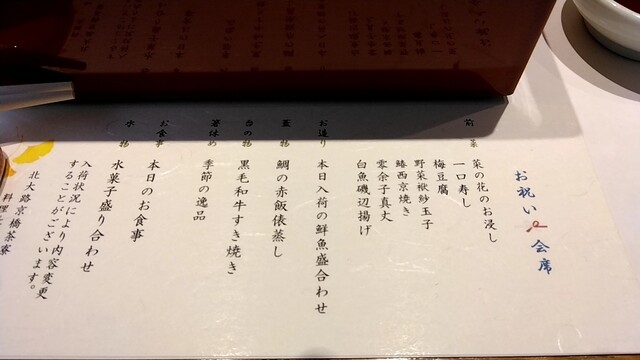 お祝い 会席
前菜 菜の花のお浸し
一口寿し
梅豆腐
野菜袱紗玉子
鰆西京焼き
零余子真丈
白魚磯辺揚げ
お造り 本日入荷の鮮魚盛合わせ
蓋物 鯛の赤飯俵蒸し
台の物 黒毛和牛すき焼き
箸休め 季節の逸品
お食事 本日のお食事
水物 水菓子盛り合わせ
入荷状況により内容変更
することがございます。
北大路京橋茶寮
料理長